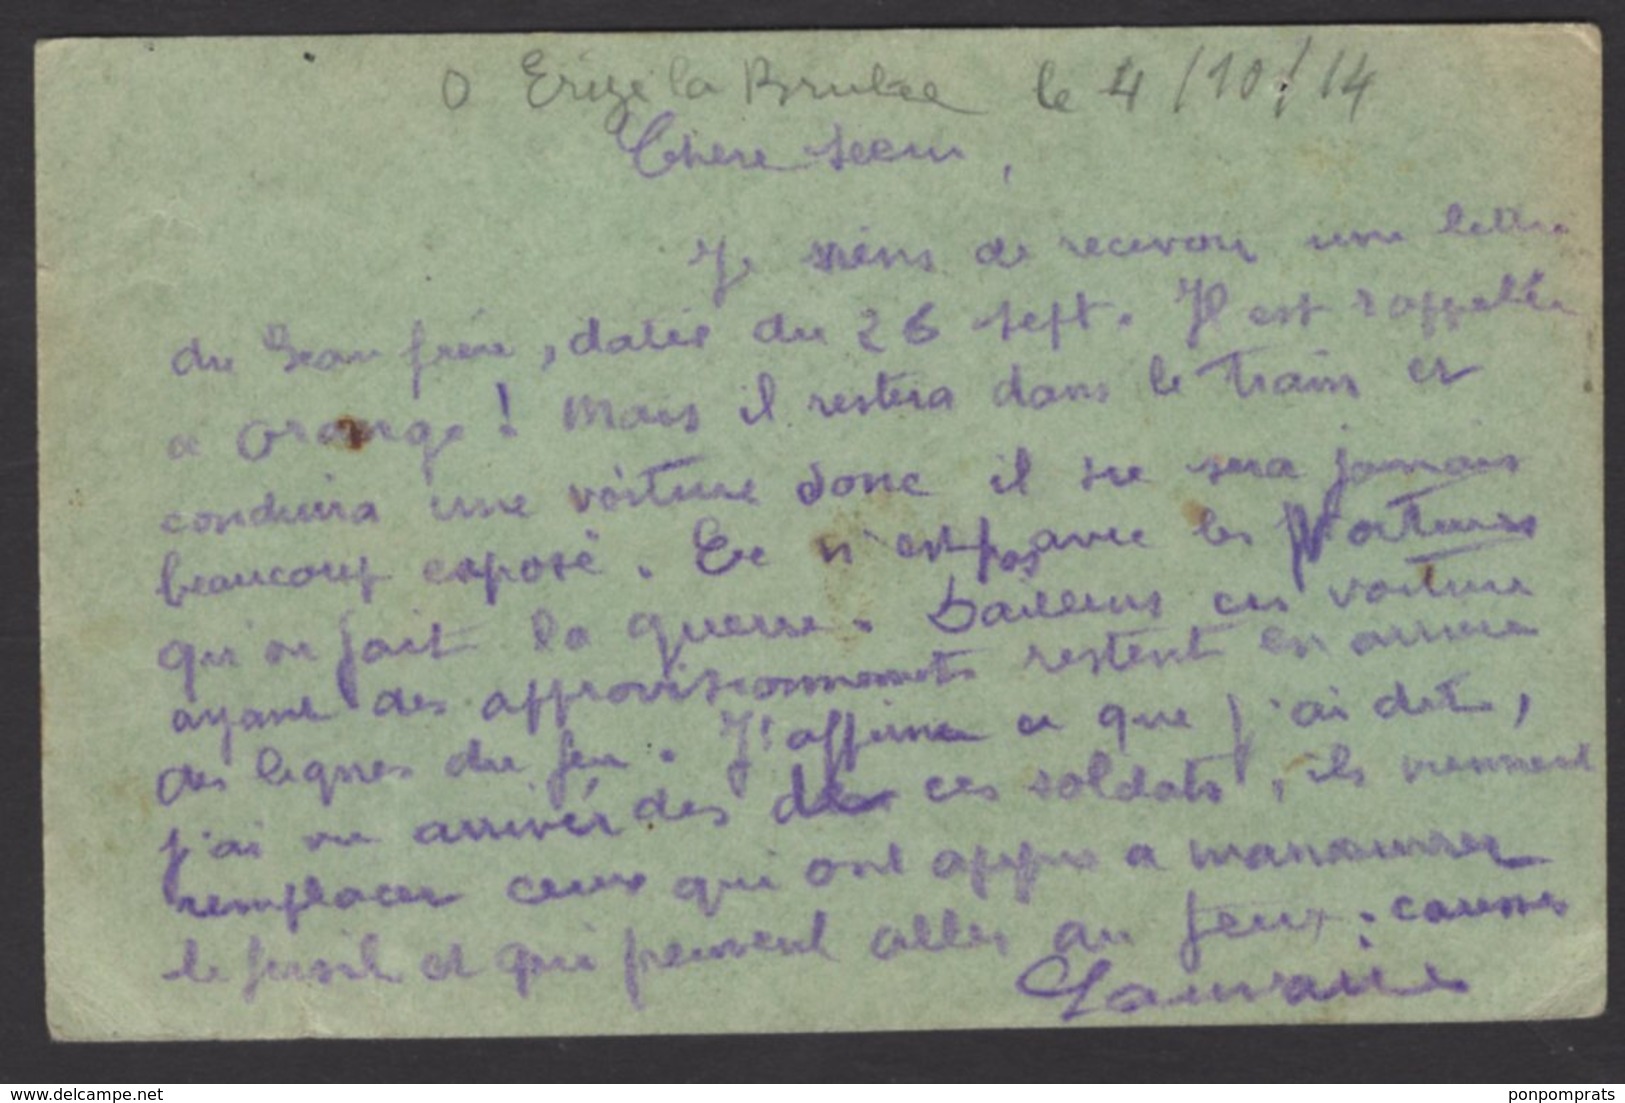 Erize la Brulée le 4/10/14
Chere seeur,
Je viens de recevoir une lettre
du beau frère, datée du 26 sept. Il est rappellée
a Orange! Mais il restera dans le train et
conduira une voiture donc il ne sera jamais
beaucoup exposé. Ce n'est pas avec les Voitures
qu'on fait la guerre. Dailleurs ces voiture
ayant des approvisionnements restent en arriere
des lignes du feu. J'affirme ce que j'ai dit,
j'ai vu arriver des de ces soldats, ils viennent
remplacer ceux qui ont appris a manoeuvrer
le fusil et qui peuvent aller au feux.
delcampe.net
ponpomprats